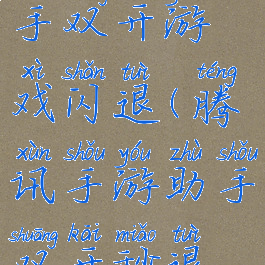 手双开游
xì shǎn tuì téng
戏闪退(腾
xùn shǒu yóu zhù shǒu
讯手游助手
shuāng kāi miǎo tuì
双开秒退